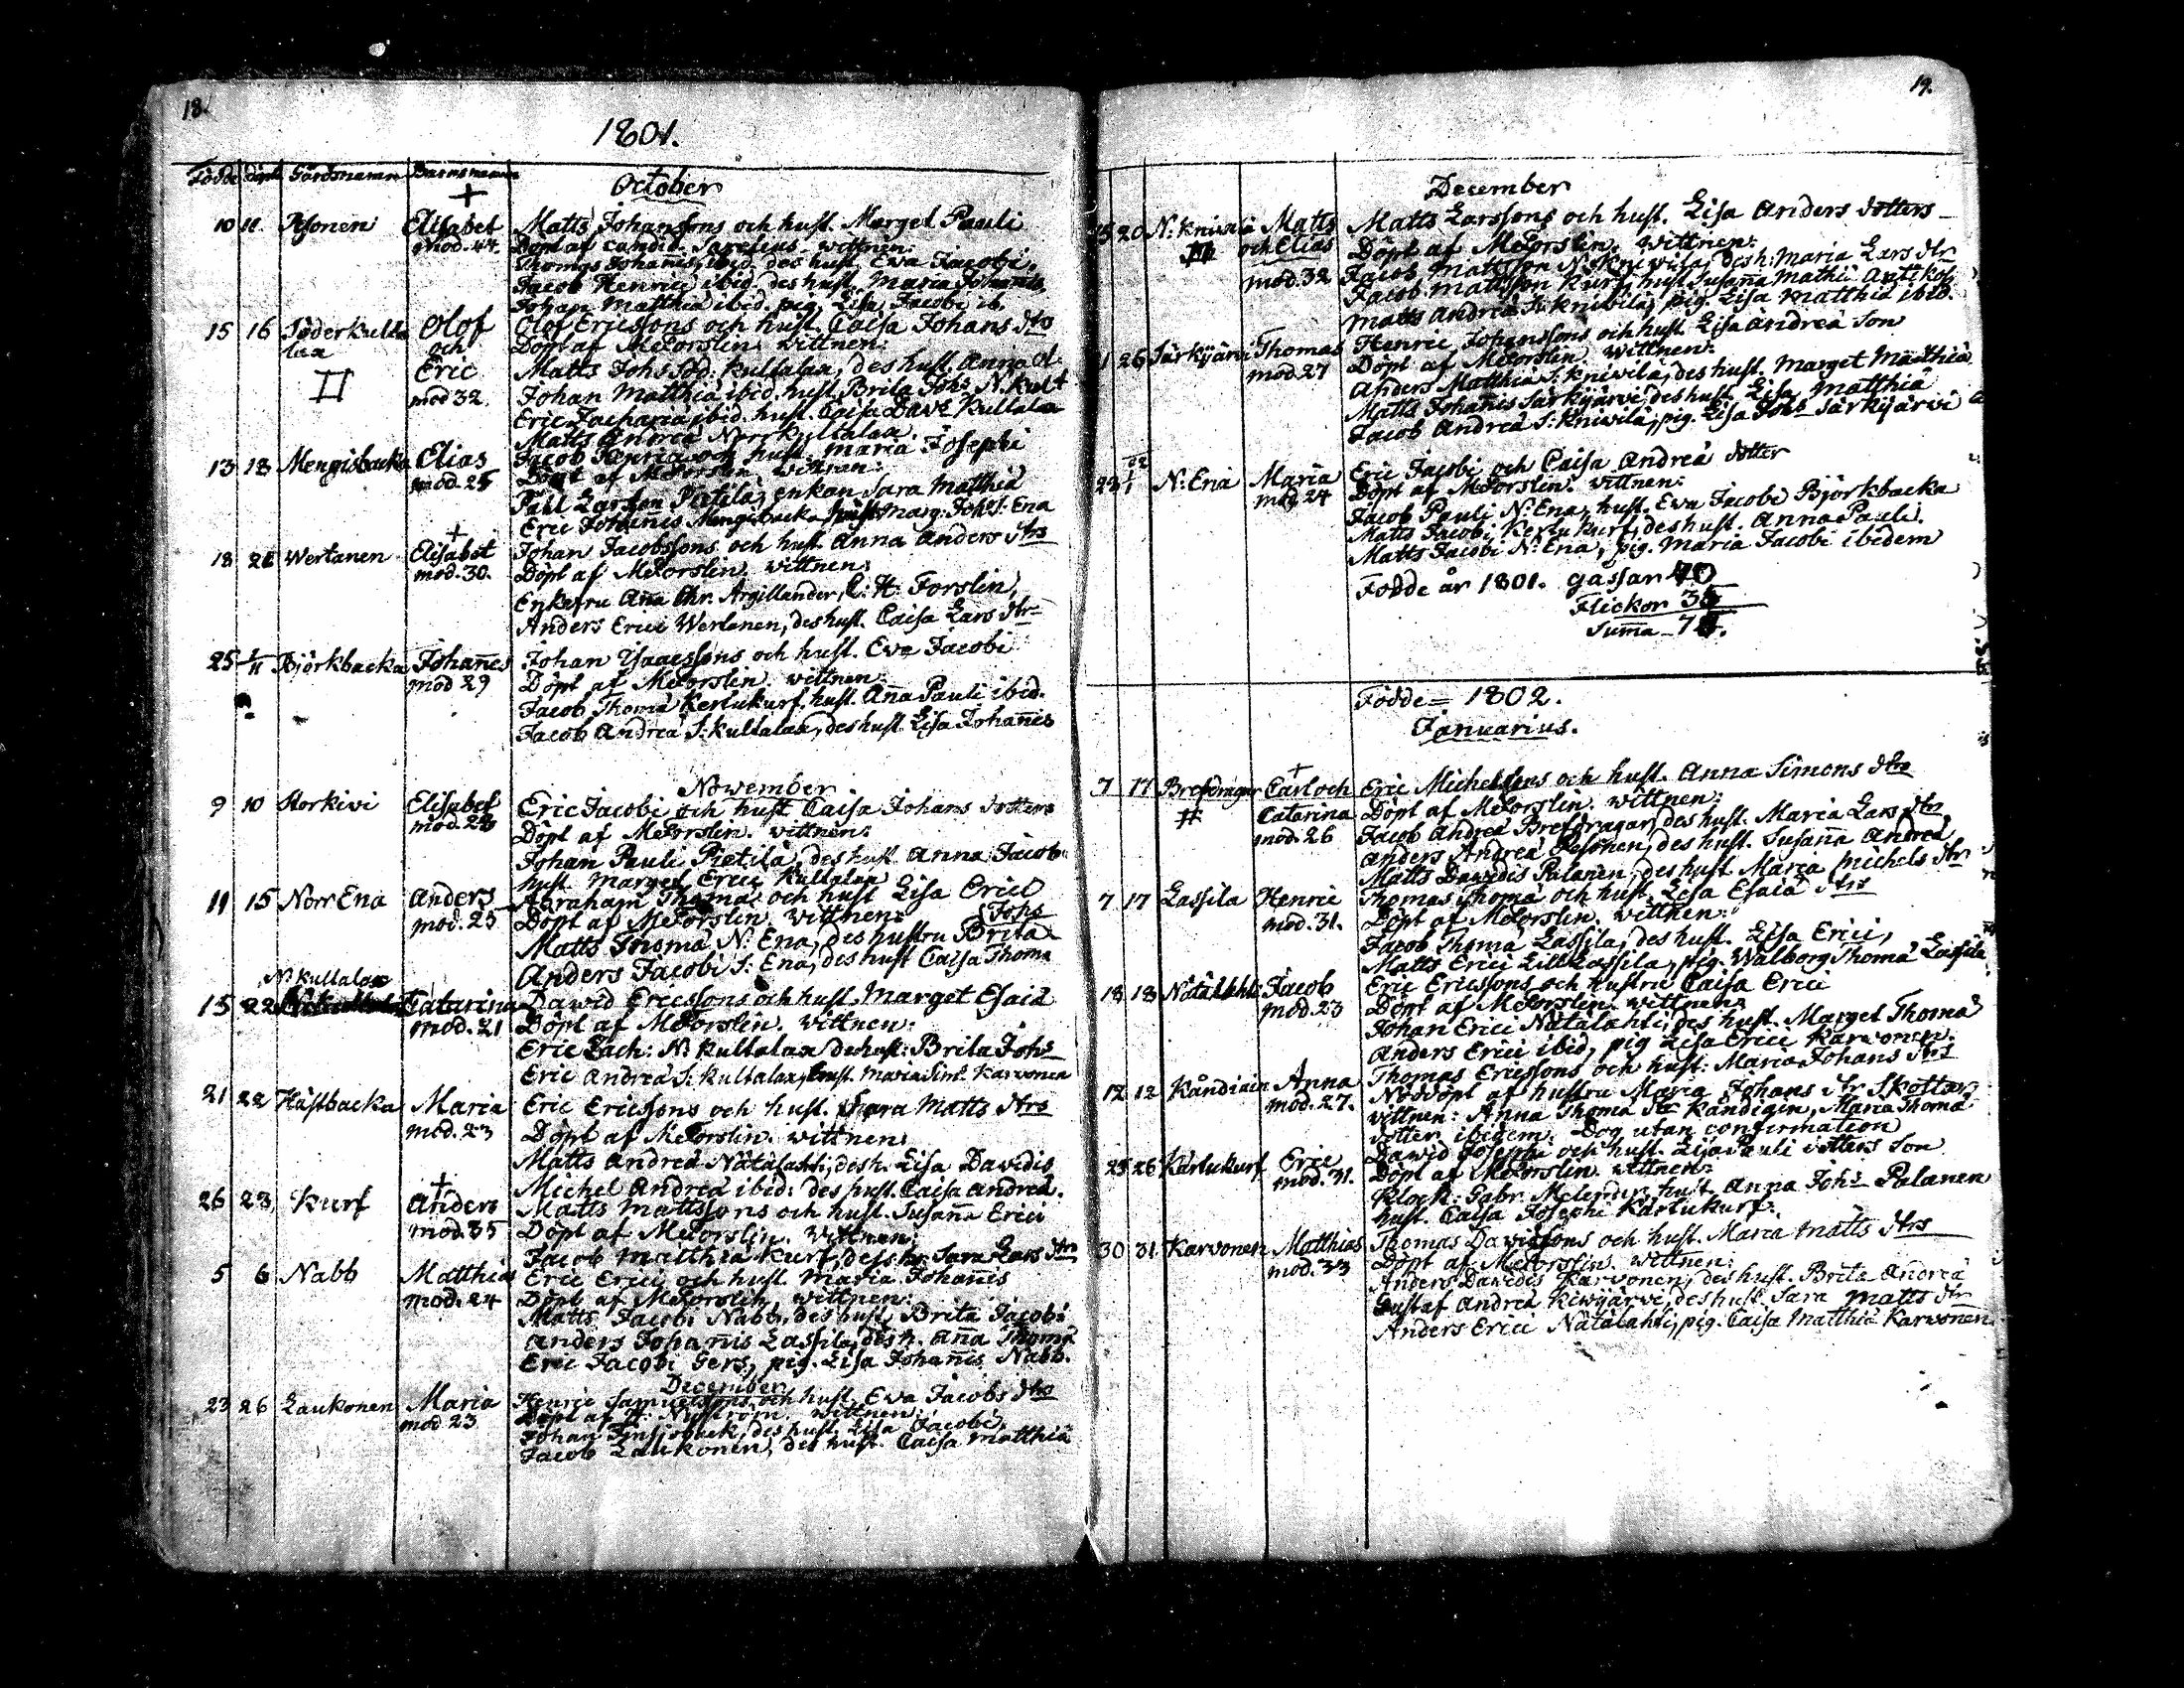 18.
1801.
Födde döpt Gårdsnamn Barnsnamn
October
10 11 Pesonen Elisabet Matts Johanssons och hust. Marget Pauli
mod. 44. Döpt af candid. wittnen:
Thomas Johannis, ibid. des hust. Ewa Jacobi.
Jacob Henrici ibid. des hust. Maria Johannis,
Johan Matthiä ibid. pig. Lisa Jacobi ib.
15 16 Söderkulta Olof Olof Ericssons och hust. Caisa Johans dtrs
laa och Döpt af McForslin. wittnen:
II Eric Matts Johs Söd: kultalaa, des hust. Anna Ol.
mod 32. Johan Matthiä ibid. hust. Brita Johs N. Kult
Eric Zachariä, ibid. hust. Caisa Davs Kultalaa
Matts Andreä Norrkultalaa.
13 18 Mengisbacka Elias Jacob Henrics och hust. Maria Josephi
mod. 25 Döpt af McForslin wittnen:
Påhl Larsson Pietilä, enkan Sara Matthiä
Eric Johannis Mengisbacka, hust. Marg: Johs S: Ena
18 21 Wertanen Elisabet Johan Jacobssons och hust Anna Anders dtrs
mod. 30. Döpt af McForslin wittnen:
Enkefru Anna Chr. Argillander, C: H: Forslin,
Anders Erici Wertanen, des hust. Caisa Lars dtr
25 1/11 Björkbacka Johannes Johan Ysaacssons och hust. Ewa Jacobi
mod 29 Döpt af McForslin. wittnen
Jacob Thomä Kertukurf. hust. Anna Pauli ibid.
Jacob Andreä S: kultalaa, des hust. Lisa Johannis
Nowember
9 10 Storkivi Elisabet Eric Jacobi och hust Caisa Johans dotters
mod. 28 Döpt af McForslin. wittnen:
Johan Pauli Pietilä, des hust. Anna Jacob
hust. Marget Erici Kultalaa
11 15 Norr Ena Anders Abraham Thomä och hust Lisa Erici
mod. 25 Döpt af McForslin. wittnen: Johs
Matts Thomä N: Ena, des hustru Brita
Anders Jacobi S: Ena, des hust Caisa Thomä
N: kultalaa
15 22 Catarina Dawid Ericssons och hust. Marget Esaiä
mod. 21 Döpt af McForslin. wittnen:
Eric Zach: N: kultalaa des hust: Brita Johs
Eric Andreä S: kultalaa, hust. Maria Sims Karvonen
21 22 Hästbacka Maria Eric Ericssons och hust. Sara Matts dtrs
mod. 23 Döpt af McForslin. wittnen:
Matts Andreä Nätälahti, des h. Lisa Davidis
Michel Andreä ibid: des hust. Caisa Andreä.
26 23 Kurf Anders Matts Mattssons och hust. Susanna Erici
mod. 35 Döpt af McForslin. Wittnen:
Jacob Matthiä Kurf, des h. Sara Lars dtr
5 6 Nabb Matthias Eric Erici och hust. Maria Johanis
mod. 24 Döpt af McForslin wittnen:
Matts Jacobi Nabb, des hust. Brita Jacobi
Anders Johannis Lassila, des h. Anna Thomä
Eric Jacobi Gers, pig. Lisa Johannis Nabb.
December
23 26 Laukonen Maria Henric Samuelssons och hust. Ewa Jacobs dtrs
mod 23 Döpt af H: Nyström. wittnen:
Johan des hust. Lisa Jacobi.
Jacob Laukonen, des hust. Caisa Matthiä
19.
December
15 20 N: Knivilä Matts Matts Larssons och hust. Lisa Anders dotters
och Elias Döpt af McForslin. wittnen:
mod. 32 Jacob Mattsson N: Knivila, des h: Maria Lars dtr
Jacob Mattsson Kurf, hust. Susanna Mathiä
Matts Andreä N: Knivilä, pig. Lisa Matthiä ibid.
26 Särkijärvi Thomas Henric Johanssons och hust. Lisa Andreä Son
mod. 27 Döpt af McForslin wittnen:
Anders Matthiä S: knivilä, des hust. Marget Matthiä
Matts Johannis Särkijärvi, des hust. Lisa Matthiä
Jacob Andreä S: Knivilä, pig. Lisa Johs Särkijärvi
N: Ena Maria Eric Jacobi och Caisa Andreä dotter
mod 24 Döpt af McForslin. wittnen:
Jacob Pauli N: Ena, hust. Ewa Jacobi Björkbacka
Matts Jacobi Kertukurf, des hust. Anna Pauli.
Matts Jacobi N: Ena, pig. Maria Jacobi ibidem
Födde år 1801. gassar 40
Flickor
Summa
Födde 1802.
Januarius.
7 17 Brefdragar Carl och Eric Michelssons och hust. Anna Simons dtrs
II Catarina Döpt af McForslin. wittnen:
mod. 26 Jacob Andreä Brefdragar, des hust. Maria Lars dtr,
Anders Andreä Pesonen, des hust. Susanna Andreä
Matts Dawidis Palanen, des hust Maria Michels dtr
7 17 Lassila Henric Thomas Thomä och hust. Lisa Esaiä dtrs
mod. 31. Döpt af McForslin. wittnen:
Jacob Thomä Lassila, des hust. Lisa Erici,
Matts Erici Lill Lassila, pig. Walborg Thomä Lassila
18 18 Nätälahti Jacob Eric Ericssons och hustru Caisa Erici
mod. 23 Döpt af McForslin. wittnen:
Johan Erici Nätälahti, des hust. Marget Thomä
Anders Erici ibid, pig Lisa Erici Karwonen.
12 12 Kåndiain Anna Thomas Ericssons och hust: Maria Johans dtrs
mod. 27. Nöddöpt af hustru Maria Johans dtr Skottar
wittnen: Anna Thomä dtr Kåndigin, Maria Thomä
dotter ibidem. Dog utan confirmation
25 26 Kärtukurf Eric Dawid Josephi och hust. Lisa Pauli dotters Son
mod. 31. Döpt af McForslin. wittnen:
Klock: Gabr. hust. Anna Johs Palanen
hust. Caisa Josephi Kärtukurf.
30 31 Karvonen Matthias Thomas Davidssons och hust. Maria Matts dtrs
mod. 33 Döpt af McForslin. wittnen:
Anders Dawidis Karvonen, des hust. Brita Andreä
Gustaf Andreä Kiwijärvi, des hust. Sara Matts dtr
Anders Erici Nätälahti, pig. Caisa Matthiä Karvonen.